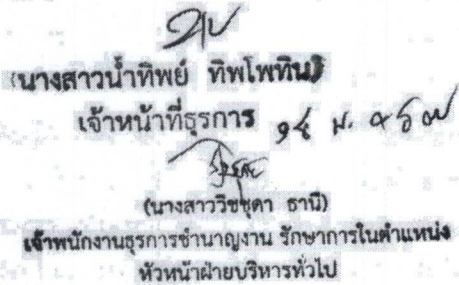 (นางสาวน้ำทิพย์ ทิพโพทิน)
เจ้าหน้าที่ธุรการ
(นางสาววิชชุดา ธานี)
เจ้าพนักงานธุรการชำนาญงาน รักษาการในตำแหน่ง
หัวหน้าฝ่ายบริหารทั่วไป